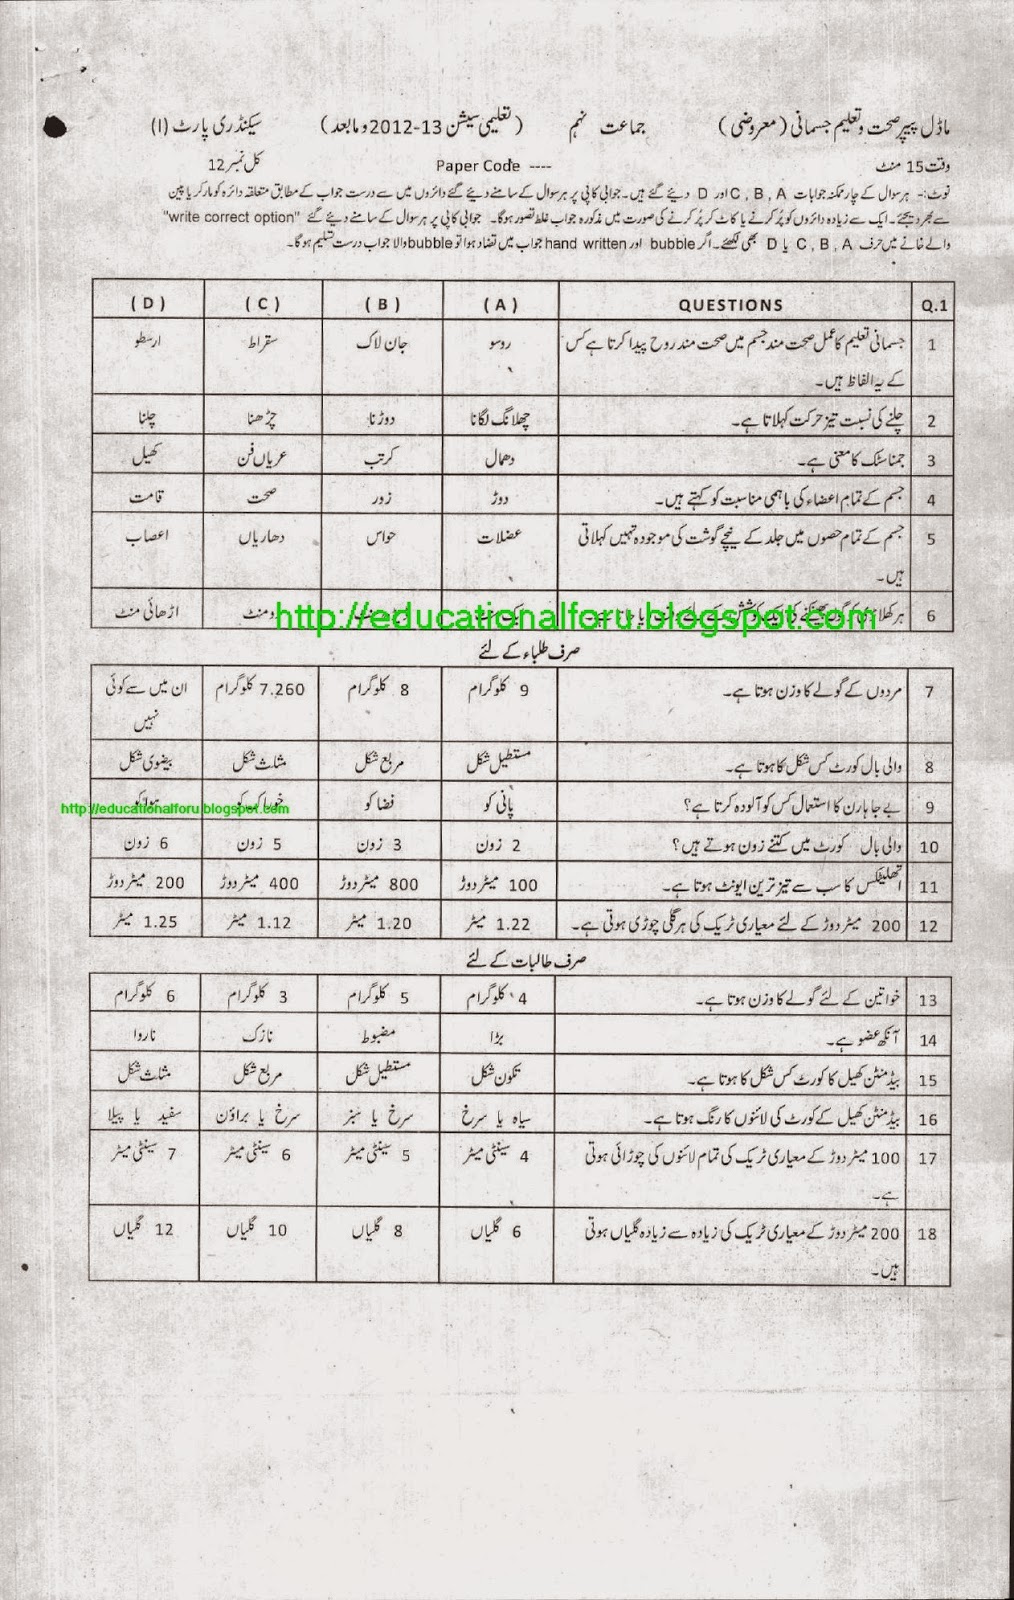 ماڈل پیپر صحت و تعلیم جسمانی (معروضی) جماعت نہم (تعلیمی سیشن 13-2012 و مابعد) سیکنڈری پارٹ (I)
وقت 15 منٹ Paper Code ---- کل نمبر 12
نوٹ:- ہر سوال کے چار ممکنہ جوابات C , B , A اور D دیئے گئے ہیں۔ جوابی کاپی پر ہر سوال کے سامنے دیئے گئے دائروں میں سے درست جواب کے مطابق متعلقہ دائرہ کو مارکر یا پین
سے بھر دیجئے۔ ایک سے زیادہ دائروں کو پُر کرنے یا کاٹ کر پُر کرنے کی صورت میں مذکورہ جواب غلط تصور ہوگا۔ جوابی کاپی پر ہر سوال کے سامنے دیئے گئے "write correct option"
والے خانے میں حرف C , B , A یا D بھی لکھئے۔ اگر bubble اور hand written جواب میں تضاد ہوا تو bubble والا جواب درست تسلیم ہوگا۔
Q.1 QUESTIONS ( A ) ( B ) ( C ) ( D )
1 جسمانی تعلیم کا عمل صحت مند جسم میں صحت مند روح پیدا کرتا ہے کس روسو جان لاک سقراط ارسطو
کے یہ الفاظ ہیں۔
2 چلنے کی نسبت تیز حرکت کہلاتا ہے۔ چھلانگ لگانا دوڑنا چڑھنا چلنا
3 جمناسٹک کا معنی ہے۔ دھمال کرتب عریاں فن کھیل
4 جسم کے تمام اعضاء کی باہمی مناسبت کو کہتے ہیں۔ دوڑ زور صحت قامت
5 جسم کے تمام حصوں میں جلد کے نیچے گوشت کی موجودہ تہیں کہلاتی عضلات حواس دھاریاں اعصاب
ہیں۔
6 ہر کھلاڑی کو گولہ پھینکنے کی ایک کوشش کے لئے اڑھائی منٹ
http://educationalforu.blogspot.com
صرف طلباء کے لئے
7 مردوں کے گولے کا وزن ہوتا ہے۔ 9 کلوگرام 8 کلوگرام 7.260 کلوگرام ان میں سے کوئی
نہیں
8 والی بال کورٹ کس شکل کا ہوتا ہے۔ مستطیل شکل مربع شکل مثلث شکل بیضوی شکل
9 بے جا ہارن کا استعمال کس کو آلودہ کرتا ہے؟ پانی کو فضا کو خوراک کو ہوا کو
http://educationalforu.blogspot.com
10 والی بال کورٹ میں کتنے زون ہوتے ہیں؟ 2 زون 3 زون 5 زون 6 زون
11 اتھلیٹکس کا سب سے تیز ترین ایونٹ ہوتا ہے۔ 100 میٹر دوڑ 800 میٹر دوڑ 400 میٹر دوڑ 200 میٹر دوڑ
12 200 میٹر دوڑ کے لئے معیاری ٹریک کی ہر گلی چوڑی ہوتی ہے۔ 1.22 میٹر 1.20 میٹر 1.12 میٹر 1.25 میٹر
صرف طالبات کے لئے
13 خواتین کے لئے گولے کا وزن ہوتا ہے۔ 4 کلوگرام 5 کلوگرام 3 کلوگرام 6 کلوگرام
14 آنکھ عضو ہے۔ بڑا مضبوط نازک ناروا
15 بیڈمنٹن کھیل کا کورٹ کس شکل کا ہوتا ہے۔ تکون شکل مستطیل شکل مربع شکل مثلث شکل
16 بیڈمنٹن کھیل کے کورٹ کی لائنوں کا رنگ ہوتا ہے۔ سیاہ یا سرخ سرخ یا سبز سرخ یا براؤن سفید یا پیلا
17 100 میٹر دوڑ کے معیاری ٹریک کی تمام لائنوں کی چوڑائی ہوتی 4 سینٹی میٹر 5 سینٹی میٹر 6 سینٹی میٹر 7 سینٹی میٹر
ہے۔
18 200 میٹر دوڑ کے معیاری ٹریک کی زیادہ سے زیادہ گلیاں ہوتی 6 گلیاں 8 گلیاں 10 گلیاں 12 گلیاں
ہیں۔